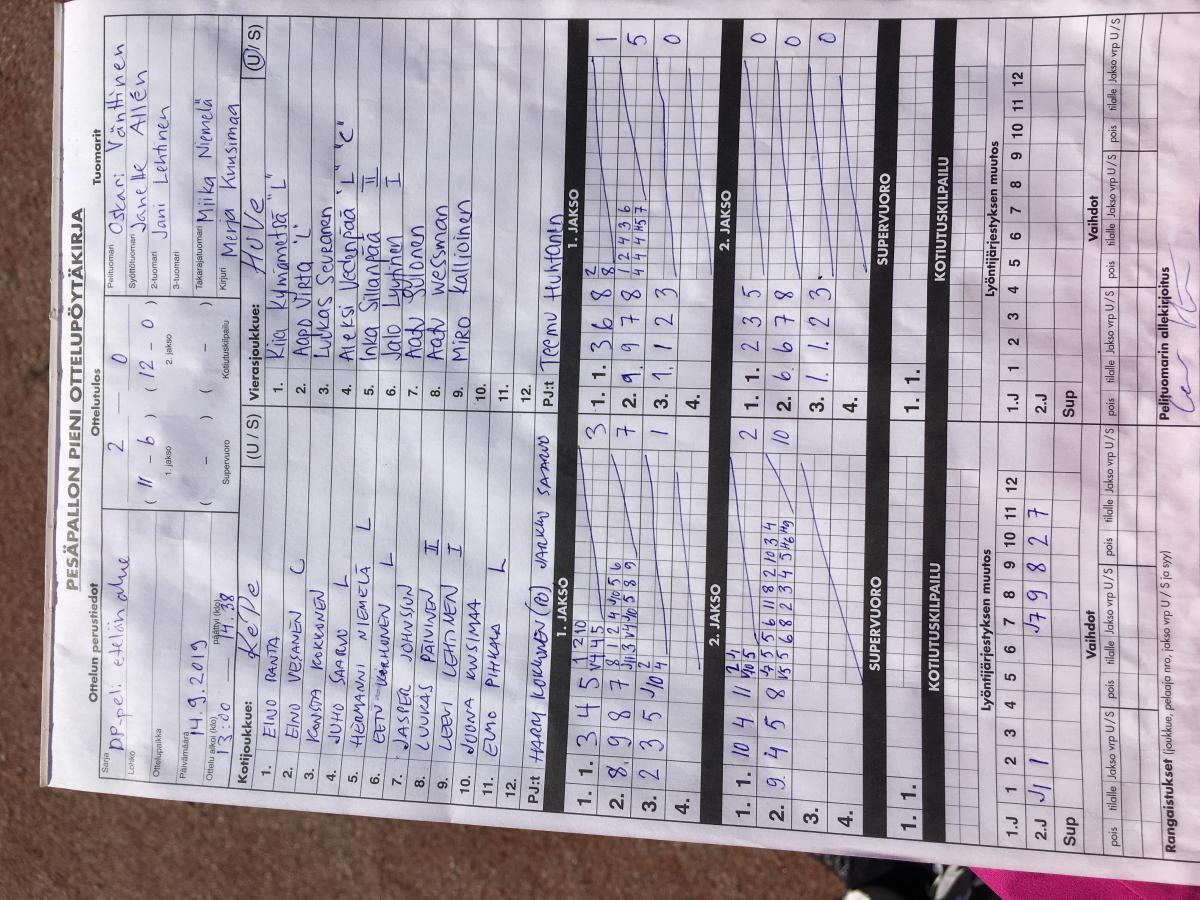 PESÄPALLON PIENI OTTELUPÖYTÄKIRJA
Ottelun perustiedot
Sarja
DP-peli etelän alue
Lohko
Ottelupaikka
Päivämäärä
14.9.2019
Ottelu alkoi (klo)
13:00
päättyi (klo)
14.38
Ottelutulos
2 0
( 11 - 6 ) ( 12 - 0 )
1. jakso 2. jakso
( - ) ( - )
Supervuoro Kotiutuskilpailu
Tuomarit
Pelituomari Oskari Vänttinen
Syöttötuomari Janette Allén
2-tuomari Jani Lehtinen
3-tuomari
Takarajatuomari Miika Niemelä
Kirjuri Merja Kuusimaa
Kotijoukkue: KePe (U / S)
1. EINO RANTA
2. EINO VERANEN C
3. KONSTA KOKKONEN
4. JUHO SAARVO L
5. HERMANNI NIEMELÄ L
6. EETU L
7. JASPER JOHNSSON
8. LUUKAS PÄIVINEN II
9. LEEVI LEHTINEN I
10. JOONA KUUSIMAA
11. ELMO PIHKALA L
12.
PJ:t HARRY KOKKONEN (PJ) JARKKO SAARVO
Vierasjoukkue: HuVe (U / S)
1. Kiia Kynnämetsä "L"
2. Aapo Virta "L"
3. Luukas Seukanen
4. Aleksi Veenpää "L" "C"
5. Inka Sillanpää II
6. Jalo Lyytinen I
7. Aatu Sulonen
8. Aatu Wessman
9. Miro Kallioinen
10.
11.
12.
PJ:t Teemu Huhtanen
1. JAKSO
1. 1. 3 4 5 1 2 10 3
2. 8. 9 8 7 7
3. 2 3 5 1
4.
1. JAKSO
1. 1. 3 6 8 1
2. 9. 9 7 8 1 2 4 3 6 5
3. 1. 1 2 3 0
4.
2. JAKSO
1. 1. 10 4 11 2
2. 9. 4 5 8 10
3.
4.
2. JAKSO
1. 1. 2 3 5 0
2. 6. 6 7 8 0
3. 1. 1. 2 3 0
4.
SUPERVUORO
1. 1.
SUPERVUORO
1. 1.
KOTIUTUSKILPAILU
KOTIUTUSKILPAILU
Lyöntijärjestyksen muutos
1.J 1 2 3 4 5 6 7 8 9 10 11 12
2.J J1 1 J7 9 8 2 7
Sup
Lyöntijärjestyksen muutos
1.J 1 2 3 4 5 6 7 8 9 10 11 12
2.J
Sup
Vaihdot
pois tilalle Jakso vrp U / S pois tilalle Jakso vrp U / S pois tilalle Jakso vrp U / S
Vaihdot
pois tilalle Jakso vrp U / S pois tilalle Jakso vrp U / S pois tilalle Jakso vrp U / S
Rangaistukset (joukkue, pelaaja nro, jakso vrp U / S ja syy)
Pelituomarin allekirjoitus